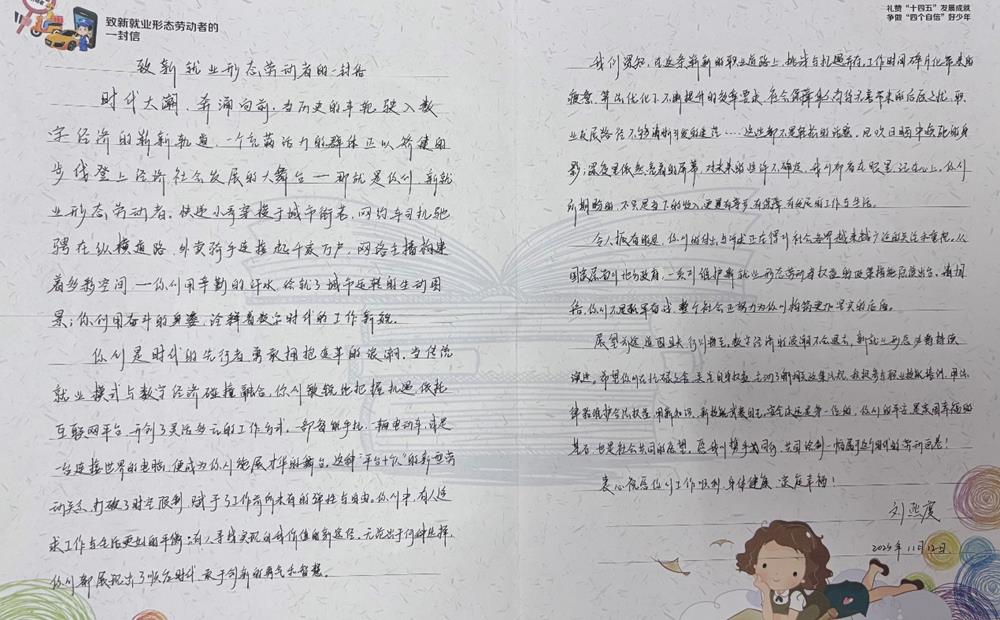 致新就业形态劳动者的
一封信
礼赞“十四五”发展成就
争做“四个自信”好少年
致新就业形态劳动者的一封信
时代大潮,奔涌向前,当历史的车轮驶入数
字经济的崭新轨道,一个充满活力的群体正以矫健的
步伐登上经济社会发展的大舞台—那就是你们,新就
业形态劳动者。快递小哥穿梭于城市街巷,网约车司机驰
骋在纵横道路,外卖骑手连接起千家万户,网络主播构建
着多彩空间—你们用辛勤的汗水,绘就了城市运转的生动图
景;你们用奋斗的身姿,诠释着数字时代的工作新貌。
你们是时代的先行者,勇敢拥抱变革的浪潮。当传统
就业模式与数字经济碰撞融合,你们敏锐地把握机遇,依托
互联网平台,开创了灵活多元的工作方式。一部智能手机、一辆电动车,或是
一台连接世界的电脑,便成为你们施展才华的舞台。这种“平台+个人”的新型劳
动关系,打破了时空限制,赋予了工作前所未有的弹性与自由。你们中,有人追
求工作与生活更好的平衡;有人寻找实现自我价值的新途径。无论出于何种选择,
你们都展现出了顺应时代、敢于创新的勇气与智慧。
我们深知,在这条崭新的职业道路上,挑战与机遇并存。工作时间碎片化带来的
疲惫,算法优化下不断提升的效率要求,社会保障
业发展路径不够清晰引发的迷茫……这些都不是轻松的话题。
影;深夜里依然亮着的屏幕,对未来的些许不确定,我们都看在眼里,记在心上。你们
所期盼的,不只是当下的收入,更是有尊严、有保障、有发展的工作与生活。
令人振奋的是,你们的付出与诉求正在得到社会各界越来越广泛的关注和重视。从
国家层面到地方政府,一系列维护新就业形态劳动者权益的政策措施陆续出台。请相
信,你们不是孤军奋战,整个社会正努力为你们构筑更加坚实的后盾。
展望前路,
数字经济的浪潮不会退去,新就业形态必将持续
演进。希望你们在忙碌之余,关注自身权益,主动了解相关政策法规,积极参与职业技能培训,用法
律武器维护合法权益,用新知识、新技能武装自己。安全永远是第一位的,你们的平安是家庭幸福的
基石,也是社会共同的愿望。愿我们携手同行,共同绘制一幅属于这个时代的劳动画卷!
衷心祝愿你们工作顺利,身体健康,家庭幸福!
刘熙虔
2025年11月12日